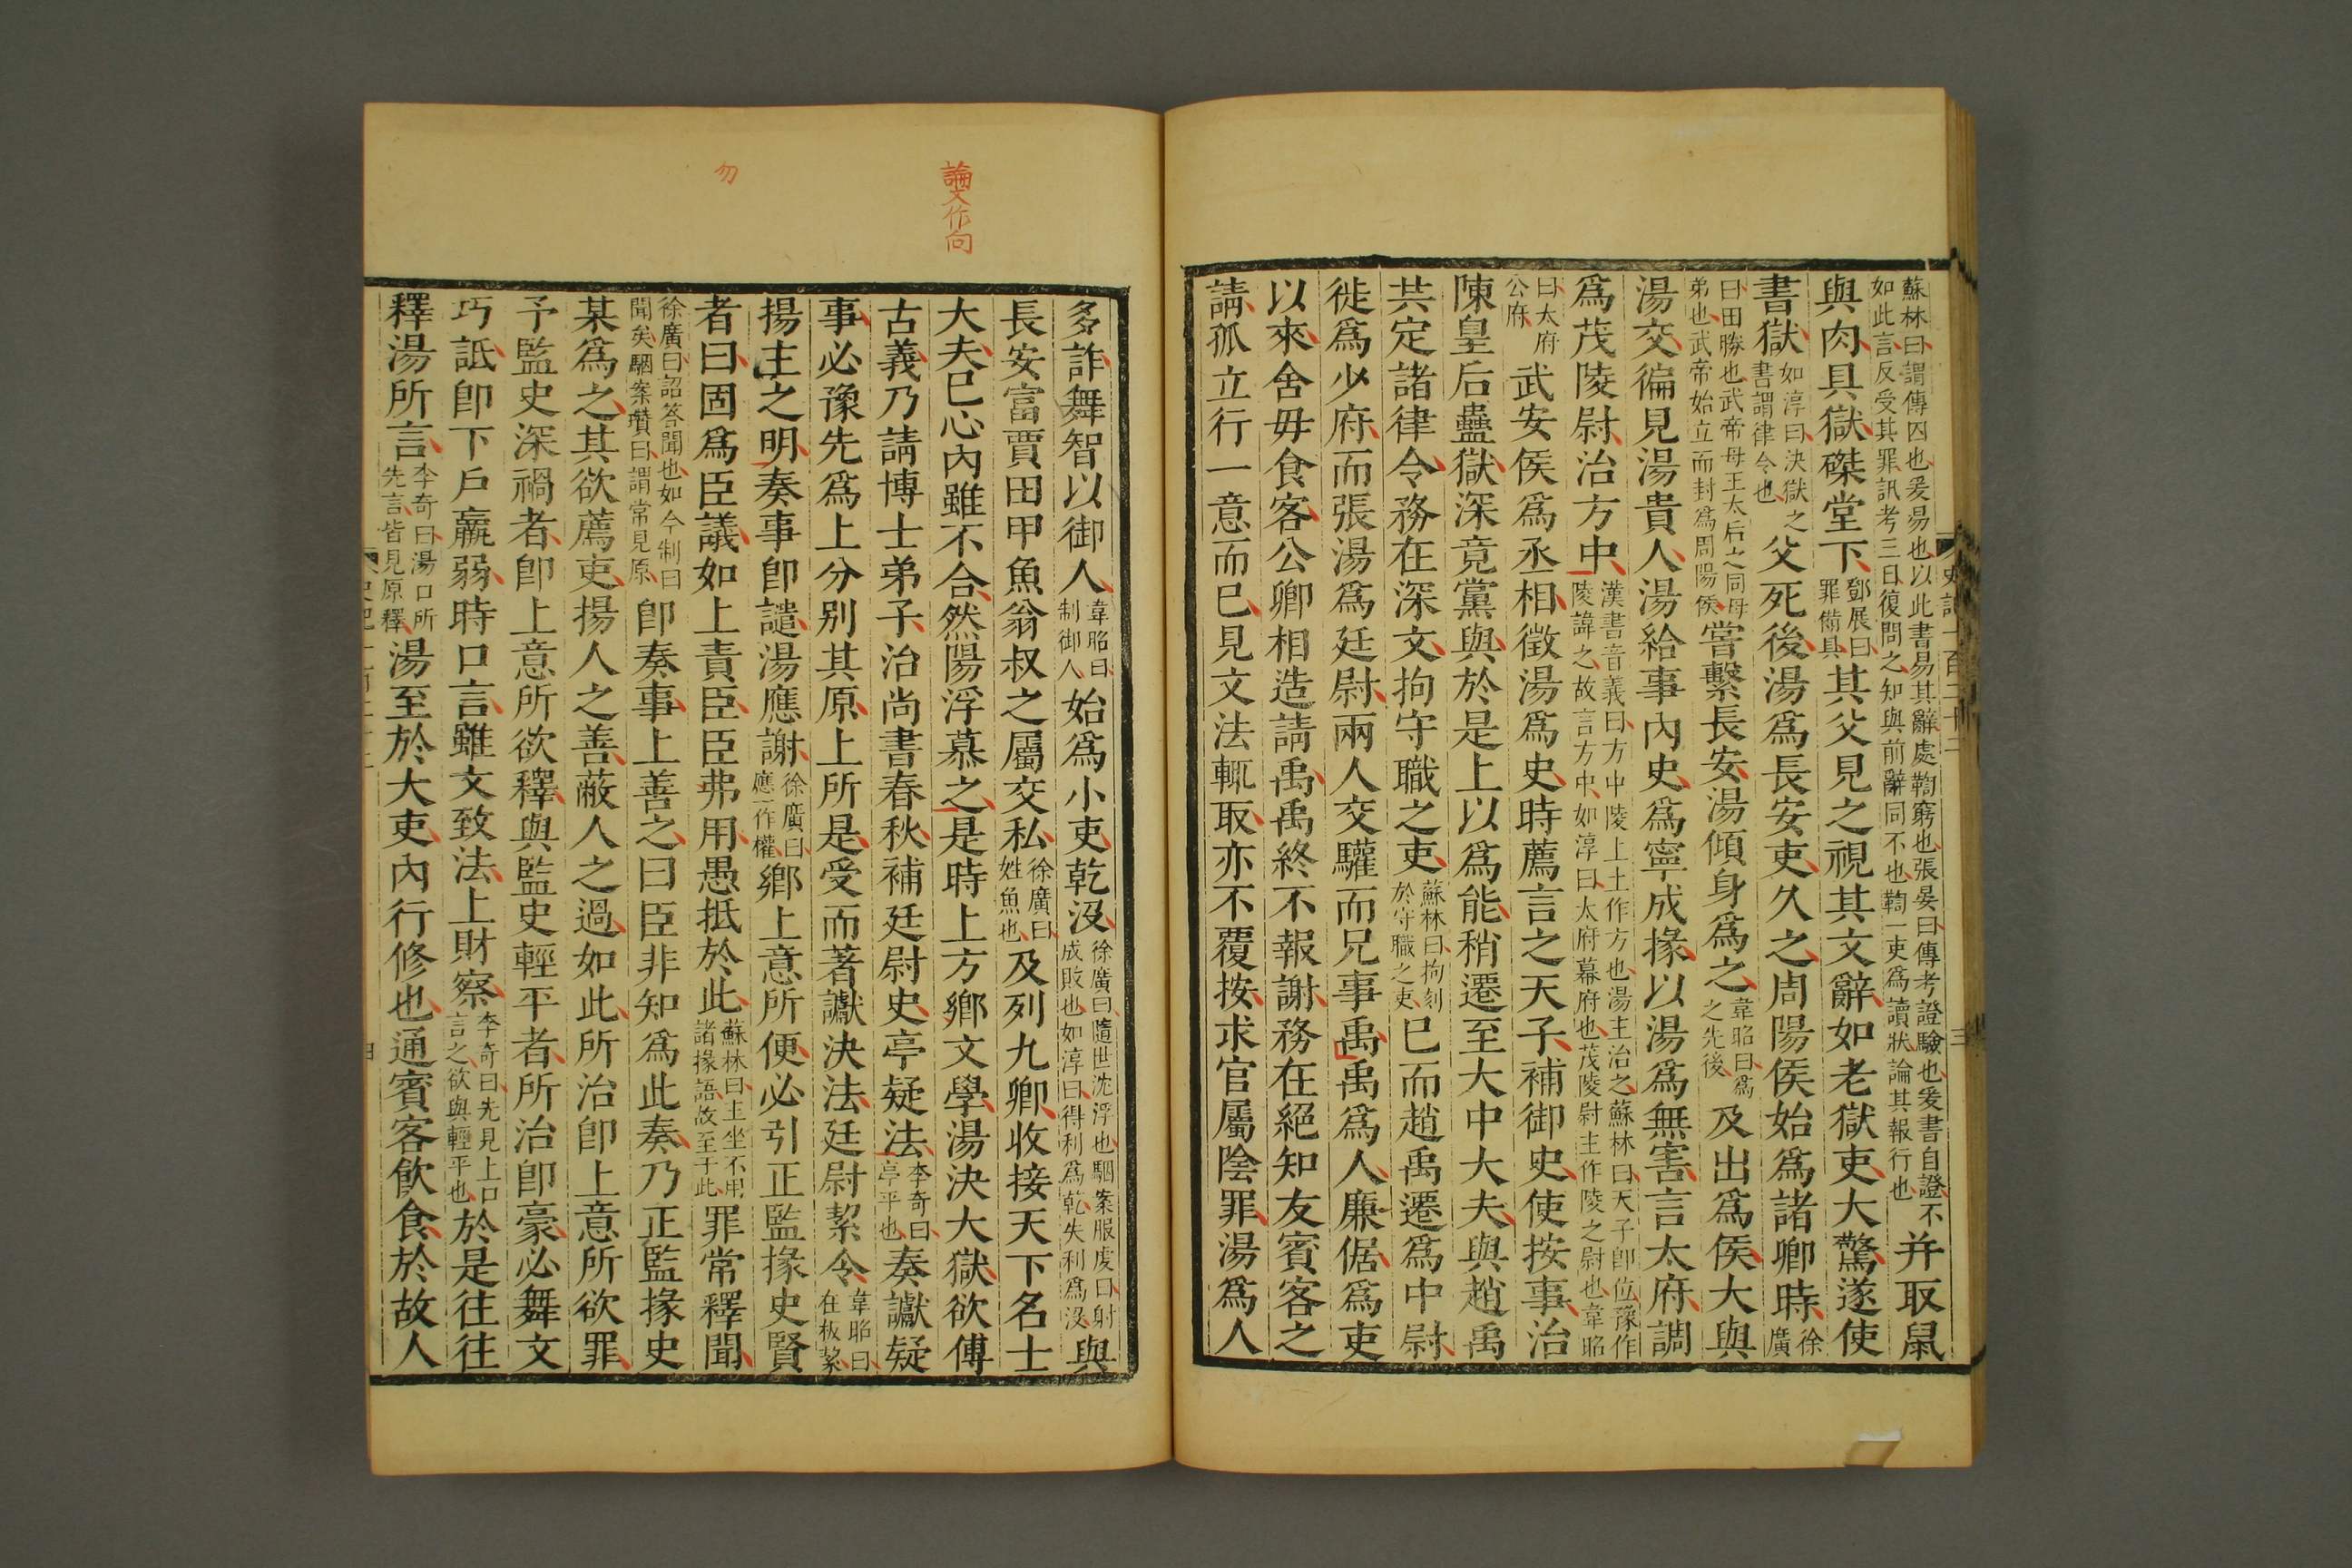 蘇林曰謂傳囚也爰易也以此書易其辭處鞫窮也張晏曰傳考證驗也爰書自證不
如此言反受其罪訊考三日復問之知與前辭同不也鞫一吏爲讀狀論其報行也
并取鼠
與肉具獄磔堂下
鄧展曰
罪備具
其父見之視其文辭如老獄吏大驚遂使
書獄
如淳曰決獄之
書謂律令也
父死後湯爲長安吏久之周陽侯始爲諸卿時
徐
廣
曰田勝也武帝母王太后之同母
弟也武帝始立而封爲周陽侯
嘗繫長安湯傾身爲之
韋昭曰爲
之先後
及出爲侯大與
湯交徧見湯貴人湯給事內史爲寧成掾以湯爲無害言太府調
爲茂陵尉治方中
漢書音義曰方中陵上土作方也湯主治之蘇林曰天子卽位豫作
陵諱之故言方中如淳曰太府幕府也茂陵尉主作陵之尉也韋昭
曰太府
公府
武安侯爲丞相徵湯爲史時薦言之天子補御史使按事治
陳皇后蠱獄深竟黨與於是上以爲能稍遷至大中大夫與趙禹
共定諸律令務在深文拘守職之吏
蘇林曰拘刻
於守職之吏
已而趙禹遷爲中尉
徙爲少府而張湯爲廷尉兩人交驩而兄事禹禹爲人廉倨爲吏
以來舍毋食客公卿相造請禹禹終不報謝務在絕知友賓客之
請孤立行一意而已見文法輒取亦不覆按求官屬陰罪湯爲人
多詐舞智以御人
韋昭曰
制御人
始爲小吏乾沒
徐廣曰隨世沈浮也駰案服虔曰射
成敗也如淳曰得利爲乾失利爲沒
與
長安富賈田甲魚翁叔之屬交私
徐廣曰
姓魚也
及列九卿收接天下名士
大夫已心內雖不合然陽浮慕之是時上方鄉文學湯決大獄欲傅
古義乃請博士弟子治尚書春秋補廷尉史亭疑法
李奇曰
亭平也
奏讞疑
事必豫先爲上分別其原上所是受而著讞決法廷尉絜令
韋昭曰
在板絜
揚主之明奏事卽譴湯應謝
徐廣曰
應一作權
鄉上意所便必引正監掾史賢
者曰固爲臣議如上責臣臣弗用愚抵於此
蘇林曰主坐不用
諸掾語故至于此
罪常釋聞
徐廣曰詔答聞也如今制曰
聞矣駰案瓚曰謂常見原
卽奏事上善之曰臣非知爲此奏乃正監掾史
某爲之其欲薦吏揚人之善蔽人之過如此所治卽上意所欲罪
予監史深禍者卽上意所欲釋與監史輕平者所治卽豪必舞文
巧詆卽下戶羸弱時口言雖文致法上財察
李奇曰先見上口
言之欲與輕平也
於是往往
釋湯所言
李奇曰湯口所
先言皆見原釋
湯至於大吏內行修也通賓客飲食於故人
論文作向
勿